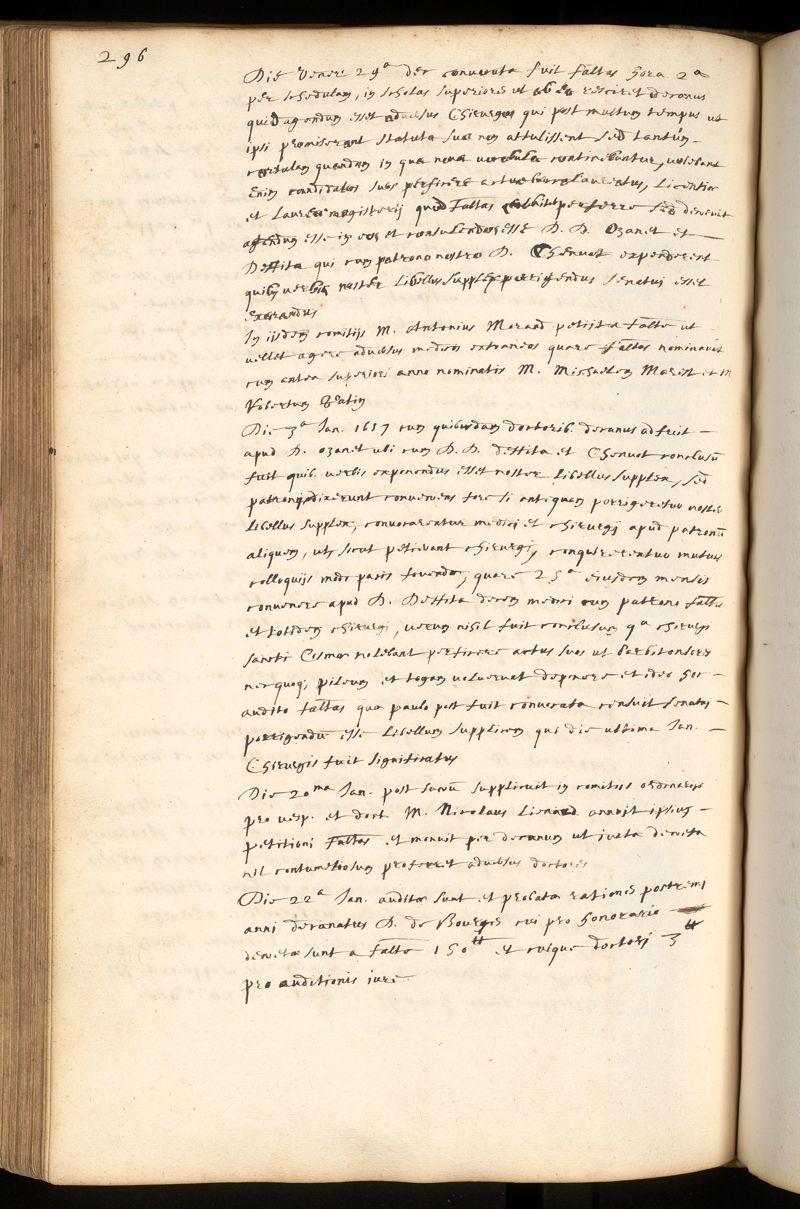 296
Die Vener. 29ª dec. convocata fuit facltas hora 2ª
per schedulam, in scholas superiores ut ab ea resciret decanus
quid agendum esset adversus Chirurgos qui post multum tempus ut
ipsi promiserant statuta sua non attulissent sed tantum
cartulam quandam in qua nova vocabula continebantur, volebant
Enim candidatos suos perficere actus baccalaureatus, Licentiæ
et Laureæ magisterij quod facltas perferre sed decrevit
agendum esse in eos et consulendos esse D. D. Ozanet et
Deffita qui cum patrono nostro D. Chenvot expenderent
quibus verbis noster Libellus supplex porrigendus senatui esset
exarandus
In iisdem comitijs M. Antonius Morand petijt a faclte ut
vellet agere adversus medicos extraneos quare facltas nominavit
cum antea superiori anno nominatis M. Michaelem Marest et M
Robertum Patin
Die 3ª Jan. 1657 cum quibusdam doctorib. decanus adfuit
apud D. ozanet ubi cum D. D. deffita et Chenvot conclusū
fuit quib. verbis exponendus esset noster Libellus supplex, sed
patroni dixerunt conveniens fore si antequam porrigeretur noster
Libellus supplex, convocarentur medici et chirurgij apud patronū
aliquem, ut, sicut petebant chirurgi, conquirerentur mutuis
colloquijs modi pacis fovendæ, quare 25ª eiusdem mensis
convenere apud D. Deffita decem medici cum patrono facltis
et totidem chirurgi, verum nihil fuit conclusum qª chirurgi
sancti Cosmæ nolebant perficere actus suos ut barbitonsores
nec quoq; pileum et togam voluerunt deponere et ideo hoc
audito facltas quæ paulo post fuit convocata censuit senatui
porrigendū esse Libellum supplicem qui die ultima Jan.
Chirurgis fuit significatus
Die 20ma Jan. post sacrū supplicuit in comitiis ordinarijs
pro vesp. et doct. M. Nicolaus Lienard annuit ipsius
petitioni facltas et monuit per decanum ut juxta decreta
nil contumeliosum proferret adversus doctores
Die 22ª Jan. auditæ sunt et probatæ rationes postremi
anni decanatus D. de Bourges cui pro honorario
decreta sunt a faclte 150tt et cuique doctori 3tt
pro auditionis iure